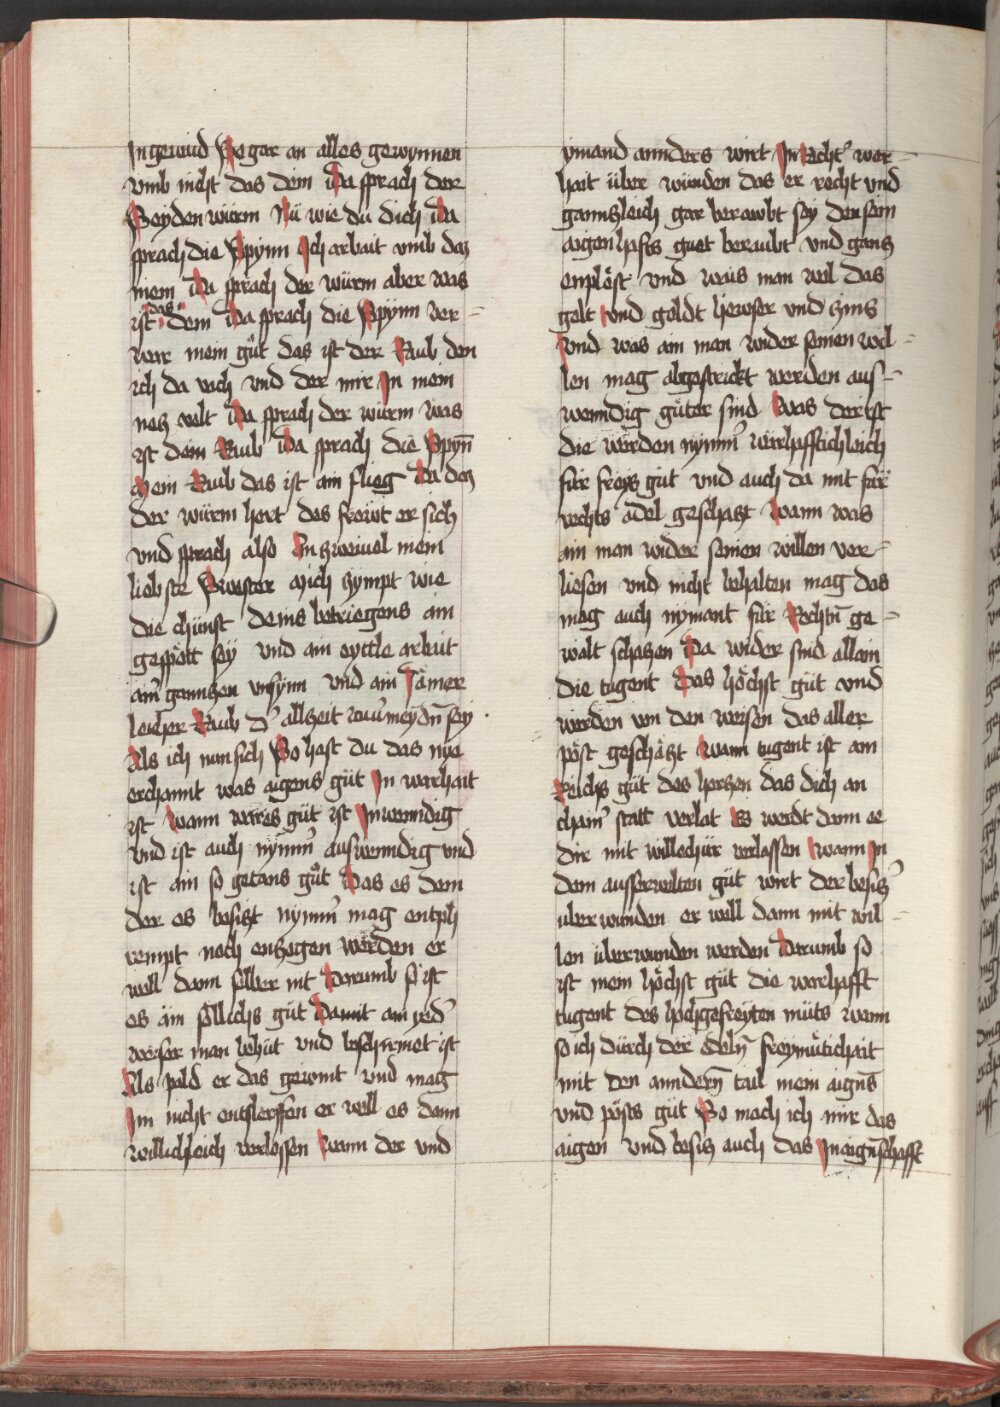 Ingewid So gar an alles gewynnen
vmb nicht das dein Da sprach der
Seyden würm Nü wie du dich Da
sprach die Spynn Ich arbait vmb daz
mein Da sprach der würm aber was
ist das dein Da sprach die Spynn ver-
var mein gůt das ist der Raub den
ich da vach vnd der mir In mein
necz velt Da sprach der würm was
ist dein Raub Da sprach die Spyn̄
Mein Raub das ist ain flieg Da daz
der würm hort des frewt er sich
vnd sprach also An zweiuel mein
liebste Swester Mich zympt wie
die chünst deins betriegens ain
gespött sey vnd ain eyttle arbait
ain ganntzen vnsynn vnd ain Jämer
leicher Raub allzeit sey
Als ich nun sich So hast du das nye
erchannt was aigens gůt In warhait
ist Wann wares gůt ist Inwenndig
vnd ist auch nymm̄ auswenndig vnd
ist ain so getans gůt Das es dem
der es besitzt nymm̄ mag entph
rempt noch enzogen werden er
well dann selber mit Darumb so ist
es ain söllichs gůt Damit ain yed
weiser man behüt vnd beschirmet ist
Als pald er das gewint vnd mag
Im nicht entslerffen er well es dann
willichleich verlassen Wann der vnd
ymand annders wirt In Recht war-
hait über wünden das er recht vnd
gannczleich gar berawbt sey der sein
aigen haffts guet beraubt vnd gancz
enplöst vnd waüs man weil das
gelt vnd goldt hewser vnd zins
Vnd was ain man wider seinen wil-
len mag abgestrickt werden aus-
wenndig gůter sind Was der ist
die werden nymm̄ warhafftichleich
für freys gůt vnd auch da mit für
rechts adel geschatzt Wann was
ain man wider seinen willen ver-
liesen vnd nicht behalten mag das
mag auch nymant für Rechtn̄ ge-
walt schatzen Da wider sind allain
die tugent Das höchst gůt vnd
werden von den weisen das aller
pöst geschätzt Wann tugent ist ain
Reichs gůt des herczen das dich an
chain statt verlat Es werdt dann ee
dir mit willechür verlassen Wann In
dem ausserwelten gůt wirt der besicz
uberwunden er well dann mit wil-
len überwunden werden Darumb so
ist mein höchst gůt die warhafft
tugent des hochgefreyten můts wann
so ich dürch der edeln̄ freymütichait
mit den anndern̄ tail mein aigns
vnd pösts gůt So mach ich mir das
aigen vnd besicz auch das In aignschafft